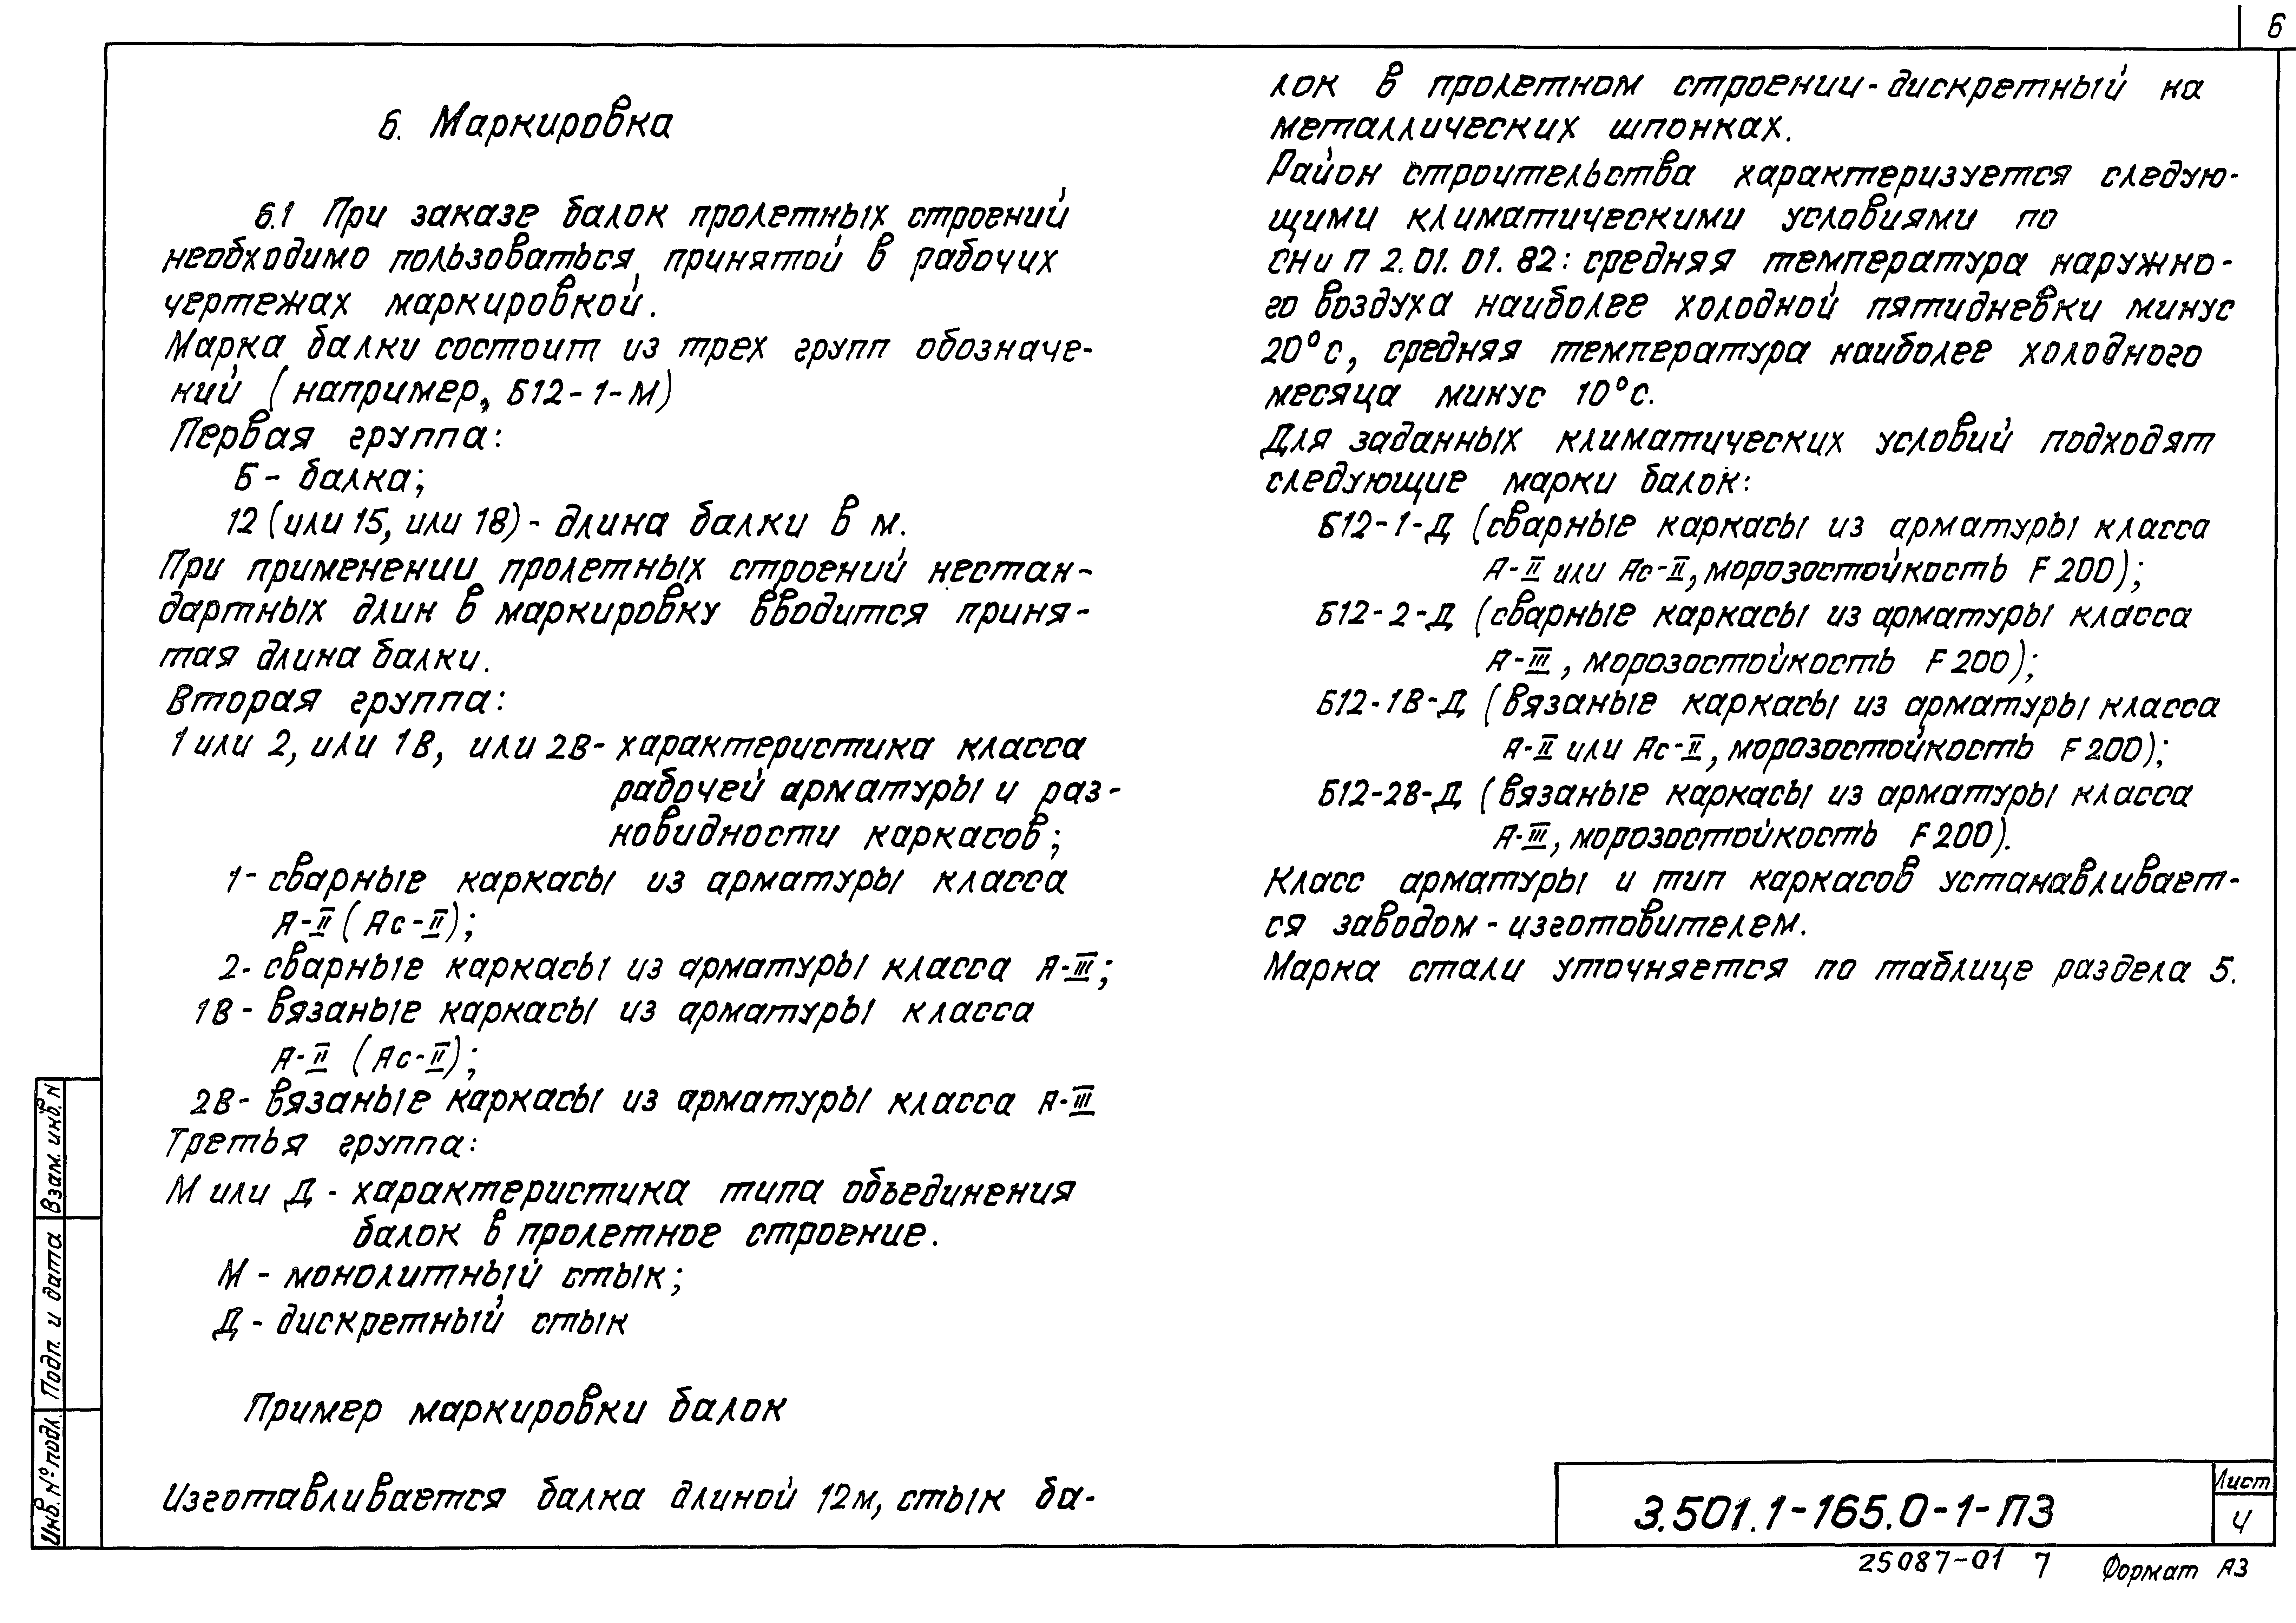 6
6. Маркировка
6.1 При заказе балок пролетных строений
необходимо пользоваться принятой в рабочих
чертежах маркировкой.
Марка балки состоит из трех групп обозначе-
ний (например, Б12-1-М)
Первая группа:
Б - балка;
12 (или 15, или 18) - длина балки в м.
При применении пролетных строений нестан-
дартных длин в маркировку вводится приня-
тая длина балки.
Вторая группа:
1 или 2, или 1В, или 2В- характеристика класса
рабочей арматуры и раз-
новидности каркасов;
1- сварные каркасы из арматуры класса
А-II (Ас-II);
2- сварные каркасы из арматуры класса А-III;
1В - вязаные каркасы из арматуры класса
А-II (Ас-II);
2В- вязаные каркасы из арматуры класса А-III
Третья группа:
М или Д - характеристика типа объединения
балок в пролетное строение.
М - монолитный стык;
Д - дискретный стык
Пример маркировки балок
Изготавливается балка длиной 12м, стык ба-
лок в пролетном строении - дискретный на
металлических шпонках.
Район строительства характеризуется следую-
щими климатическими условиями по
СНиП 2.01.01.82: средняя температура наружно-
го воздуха наиболее холодной пятидневки минус
20°С, средняя температура наиболее холодного
месяца минус 10°С.
Для заданных климатических условий подходят
следующие марки балок:
Б12-1-Д (сварные каркасы из арматуры класса
А-II или Ас-II, морозостойкость F200);
Б12-2-Д (сварные каркасы из арматуры класса
А-III, морозостойкость F200);
Б12-1В-Д (вязаные каркасы из арматуры класса
А-II или Ас-II, морозостойкость F200);
Б12-2В-Д (вязаные каркасы из арматуры класса
А-III, морозостойкость F200).
Класс арматуры и тип каркасов устанавливает-
ся заводом - изготовителем.
Марка стали уточняется по таблице раздела 5.
Взам. инв. N
Подп. и дата
Инв. № подл.
3.501.1-165.0-1-ПЗ
Лист
4
25087-01 7 Формат А3